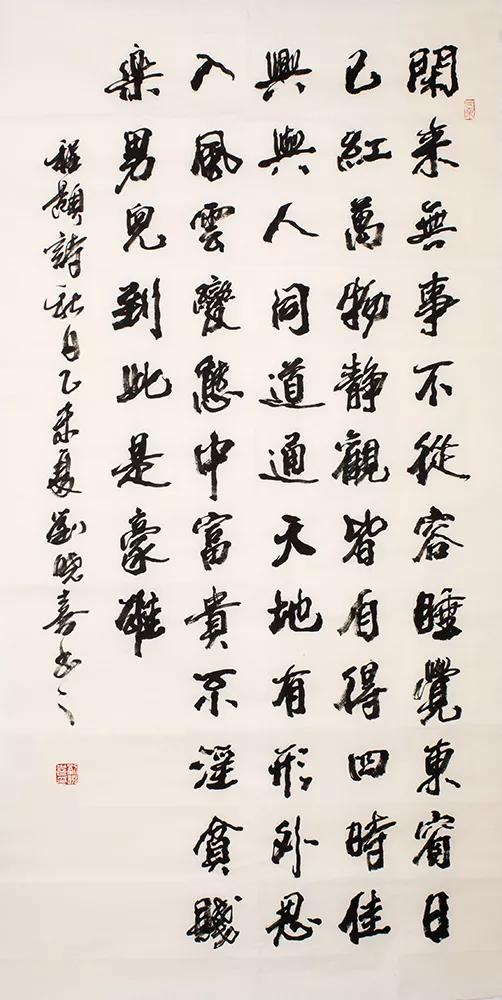 閑来無事不從容睡覺東窗日
已紅萬物靜觀皆自得四時佳
興與人同道通天地有形外思
入風雲變態中富貴不淫貧賤
樂男兒到此是豪雄
程顥詩秋日乙未夏劉晓喜书之